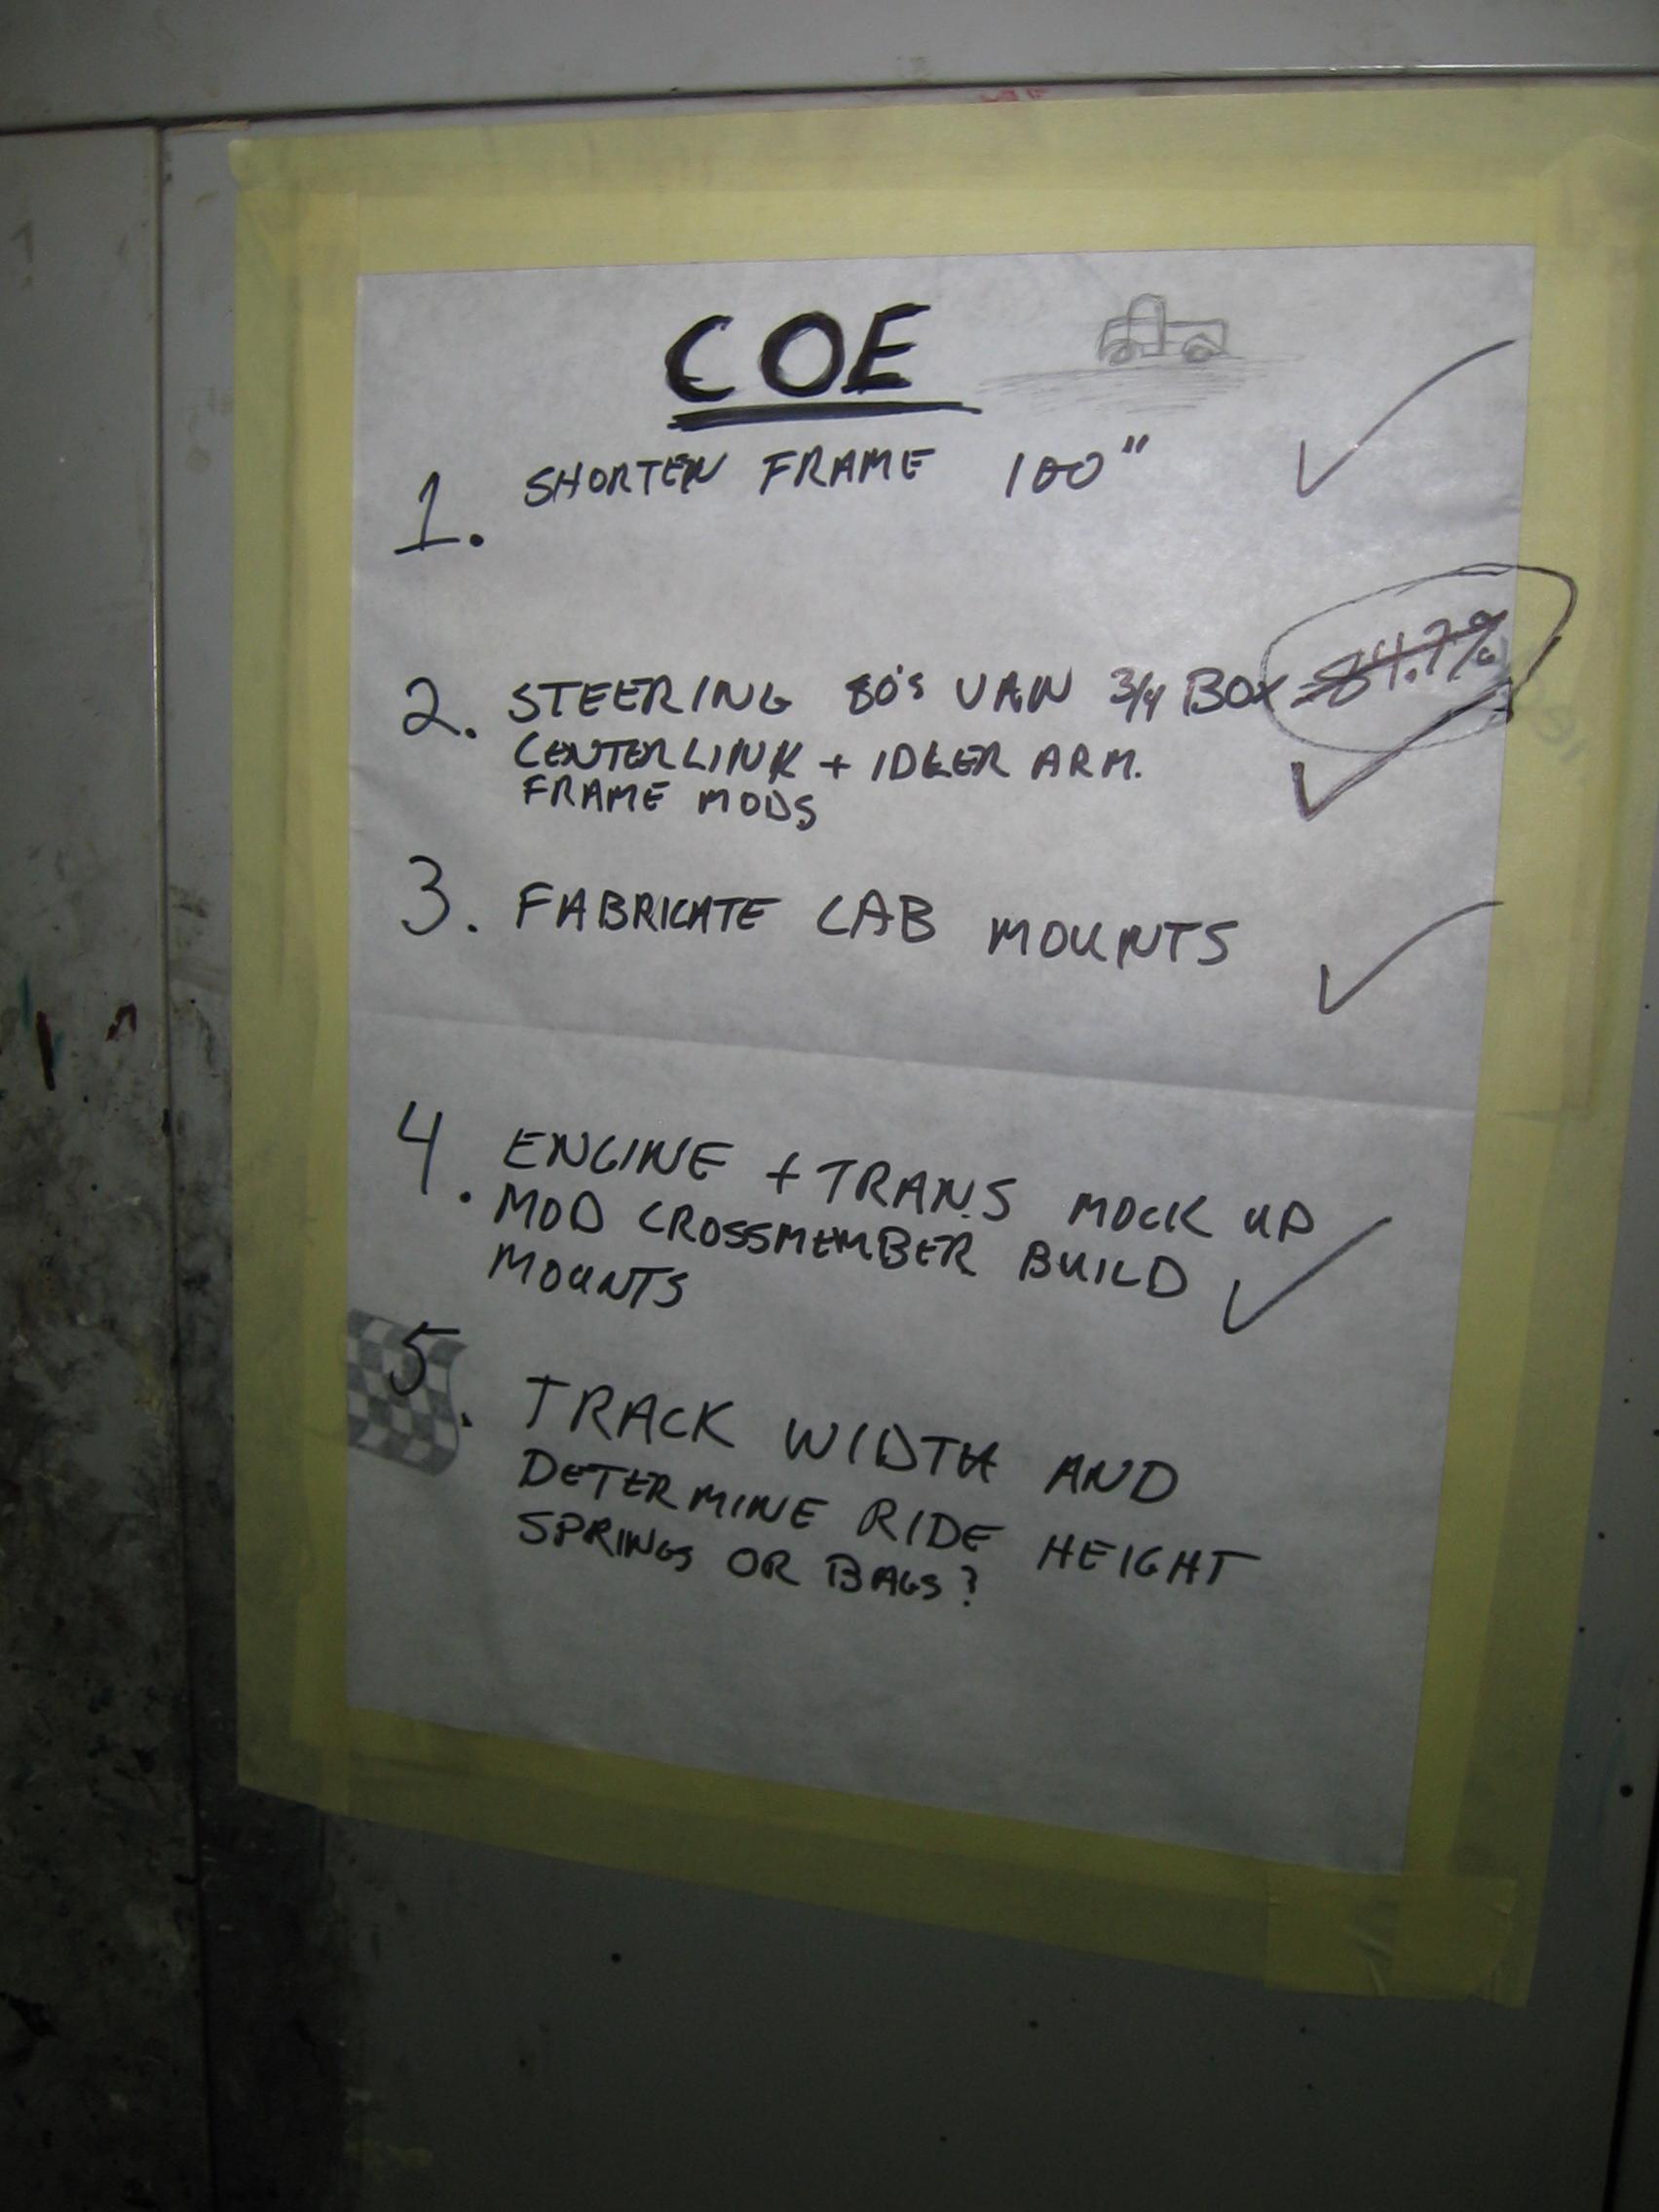 COE
1. SHORTEN FRAME 100"
2. STEERING 80's VAN 3/4 BOX 84.7%
CENTERLINK + IDLER ARM.
FRAME MODS
3. FABRICATE CAB MOUNTS
4. ENGINE + TRANS MOCK UP
MOD CROSSMEMBER BUILD
MOUNTS
5. TRACK WIDTH AND
DETERMINE RIDE HEIGHT
SPRINGS OR BAGS?